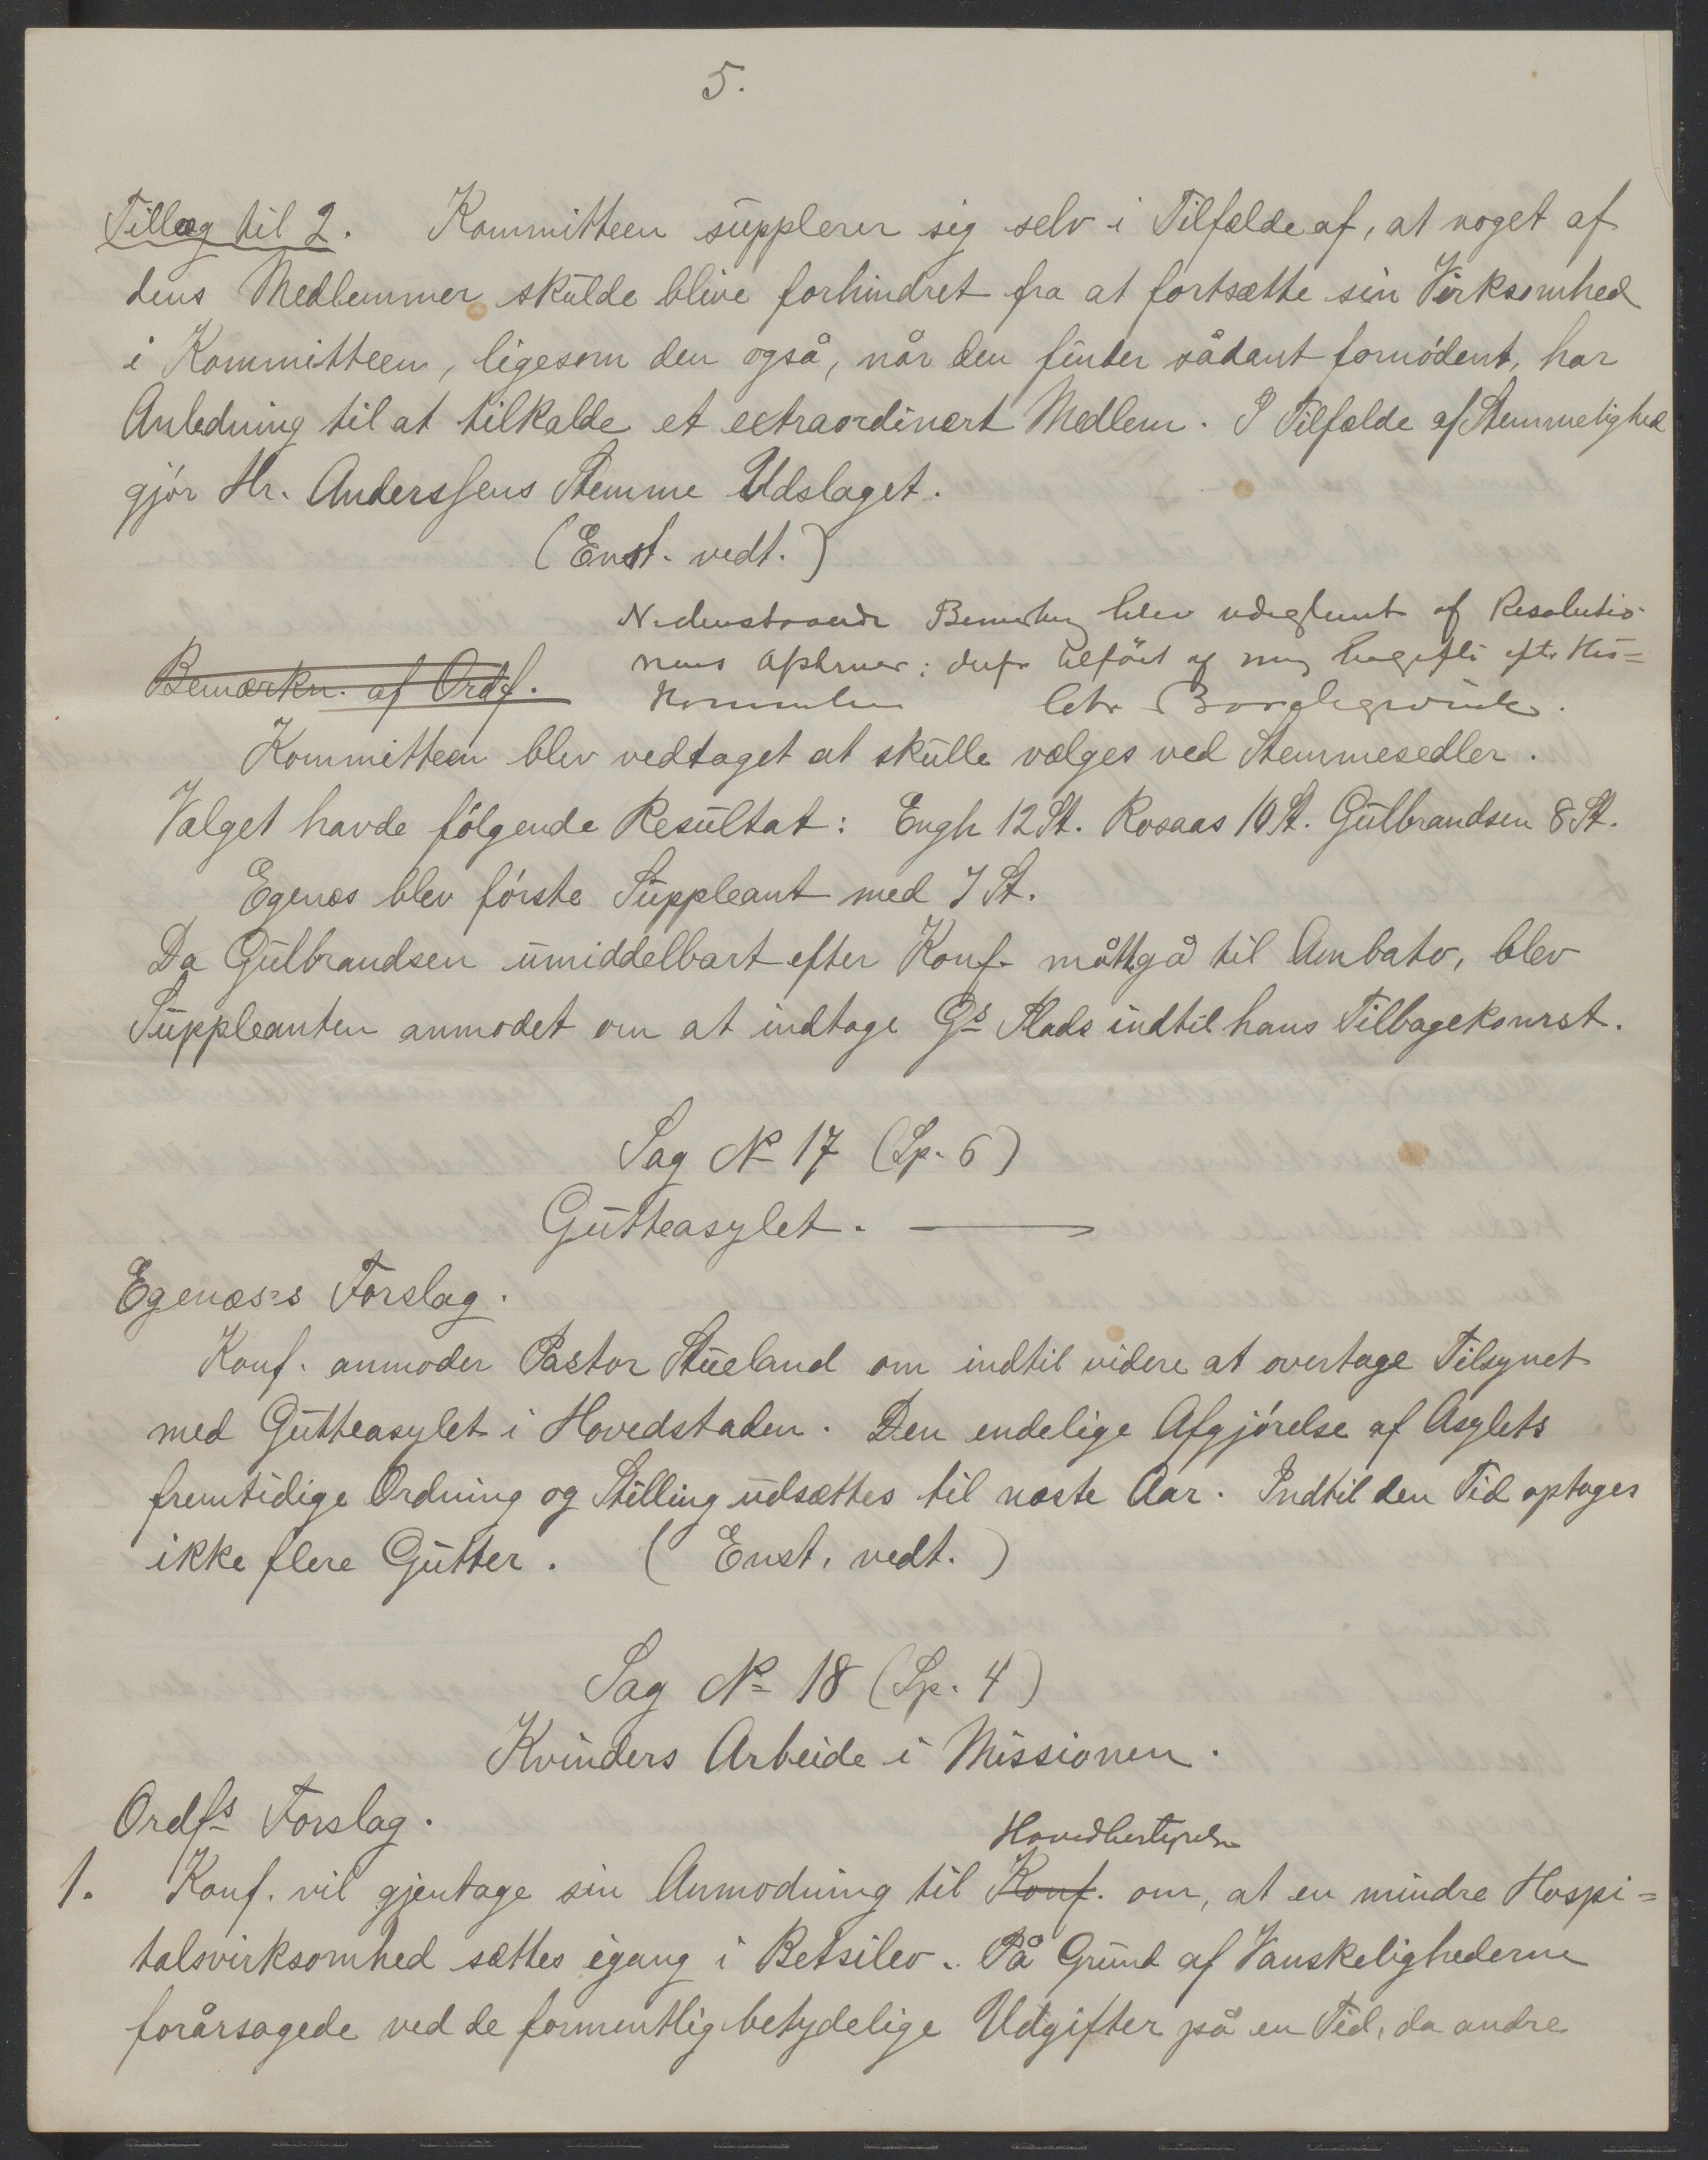 5.
Tillæg til 2. Kommitteen supplerer sig selv i Tilfælde af, at noget af
dens Medlemmer skulde blive forhindret fra at fortsætte sin Virksomhed
i Kommitteen, ligesom den også, når den finder sådant fornødent, har
Anledning til at tilkalde et extraordinært Medlem. I Tilfælde af Stemmelighed
gjör Hr. Anderssens Stemme Udslaget.
(Enst. vedt.)
Nedenstaaende Bemerkng blev udeglemt af Resolutio-
nens
Bemærkn. af Ordf.
Kommitteen blev vedtaget at skulle vælges ved Stemmesedler.
Valget havde følgende Resultat: Engh 12 St. Rosaas 10 St. Gulbrandsen 8 St.
Egenæs blev første Suppleant med 7 St.
Da Gulbrandsen umiddelbart efter Konf. måtte gå til Ambato, blev
Suppleanten anmodet om at indtage Gs Plads indtil hans Tilbagekomst.
Sag No 17 (Sp. 6)
Gutteasylet.
Egenæs's Forslag.
Konf. anmoder Pastor Stueland om indtil videre at overtage Tilsynet
med Gutteasylet i Hovedstaden. Den endelige Afgjørelse af Asylets
fremtidige Ordning og Stilling udsættes til næste Aar. Indtil den Tid optages
ikke flere Gutter. (Enst. vedt.)
Sag No 18 (Sp. 4)
Kvinders Arbeide i Missionen.
Ordfs Forslag.
Hovedbestyrelsen
1. Konf. vil gjentage sin Anmodning til Konf. om, at en mindre Hospi=
talsvirksomhed sættes igang i Betsileo. På Grund af Vanskelighederne
forårsagede ved de formentlig betydelige Udgifter på en Tid, da andre